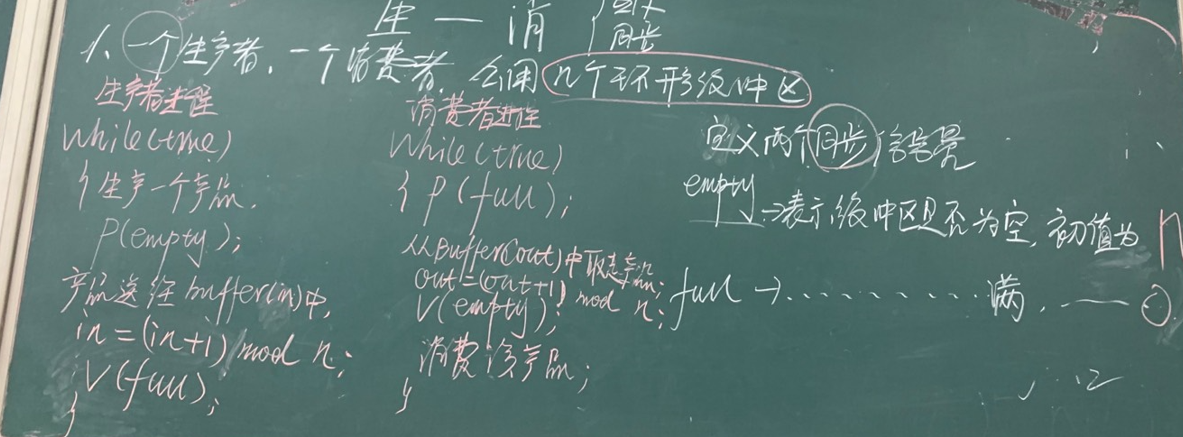 生一消
同步
1、一个生产者、一个消费者,公用n个环形缓冲区
生产者进程
while(true)
{生产一个产品.
P(empty);
产品送经buffer(in)中,
in=(in+1)mod n;
V(full);
}
消费者进程
while(true)
{P(full);
从Buffer(out)中取走产品;
out=(out+1) mod n;
V(empty);
消费该产品;
}
定义两个同步信号量
empty→表示缓冲区是否为空,初值为n
full→...........满,——0